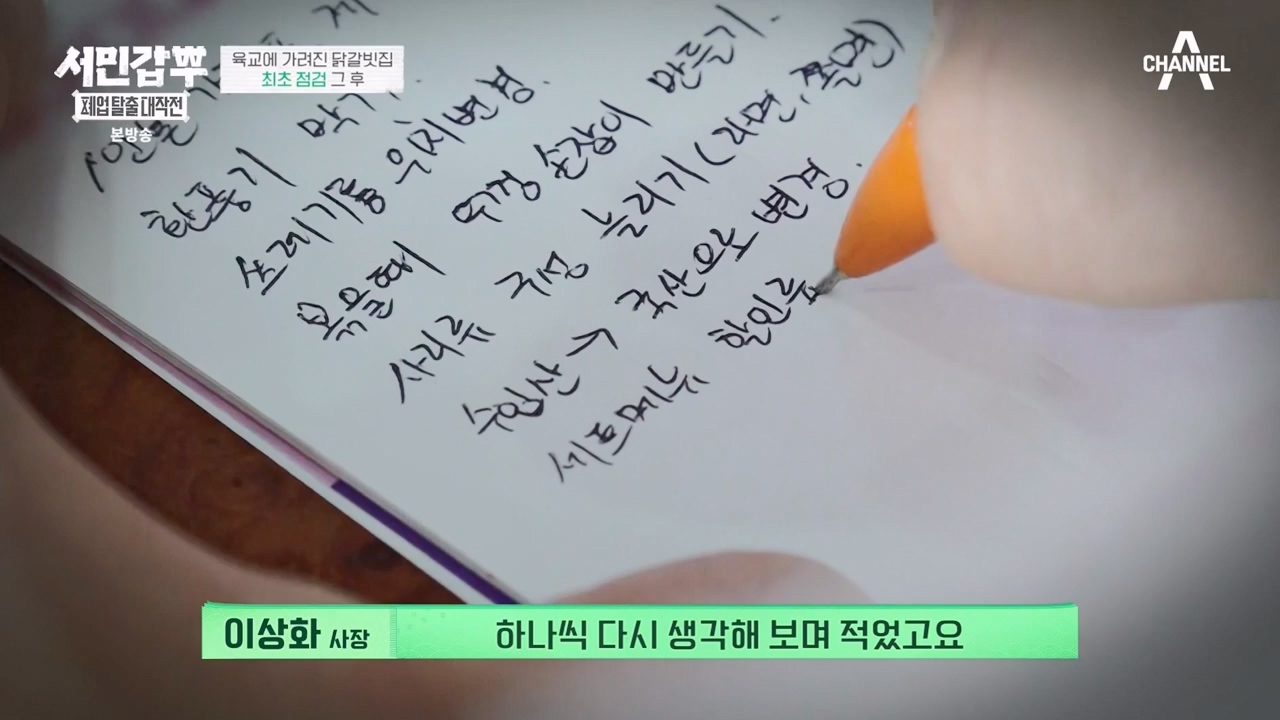 서민갑뿌
폐업 탈출 대작전
본방송
육교에 가려진 닭갈빗집
최초 점검 그 후
CHANNEL A
제
환풍기 막기.
쓰레기통 위치변경.
볶을때 뚜껑 손잡이 만들기.
사리류 구성 늘리기 (라면, 쫄면)
수입산 → 국산으로 변경.
세트메뉴 할인
이상화 사장
하나씩 다시 생각해 보며 적었고요